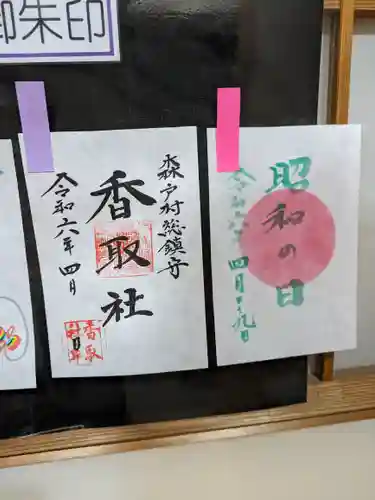 御朱印
森戸村総鎮守
香取社
令和六年四月
香取
昭和の日
令和六年
四月二十九日